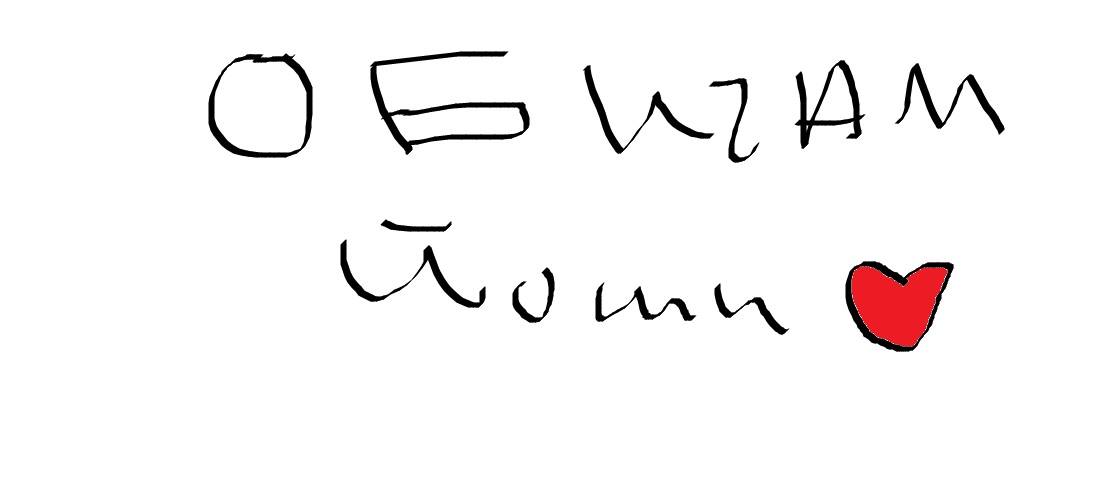 ОБИЧАМ
Йоши